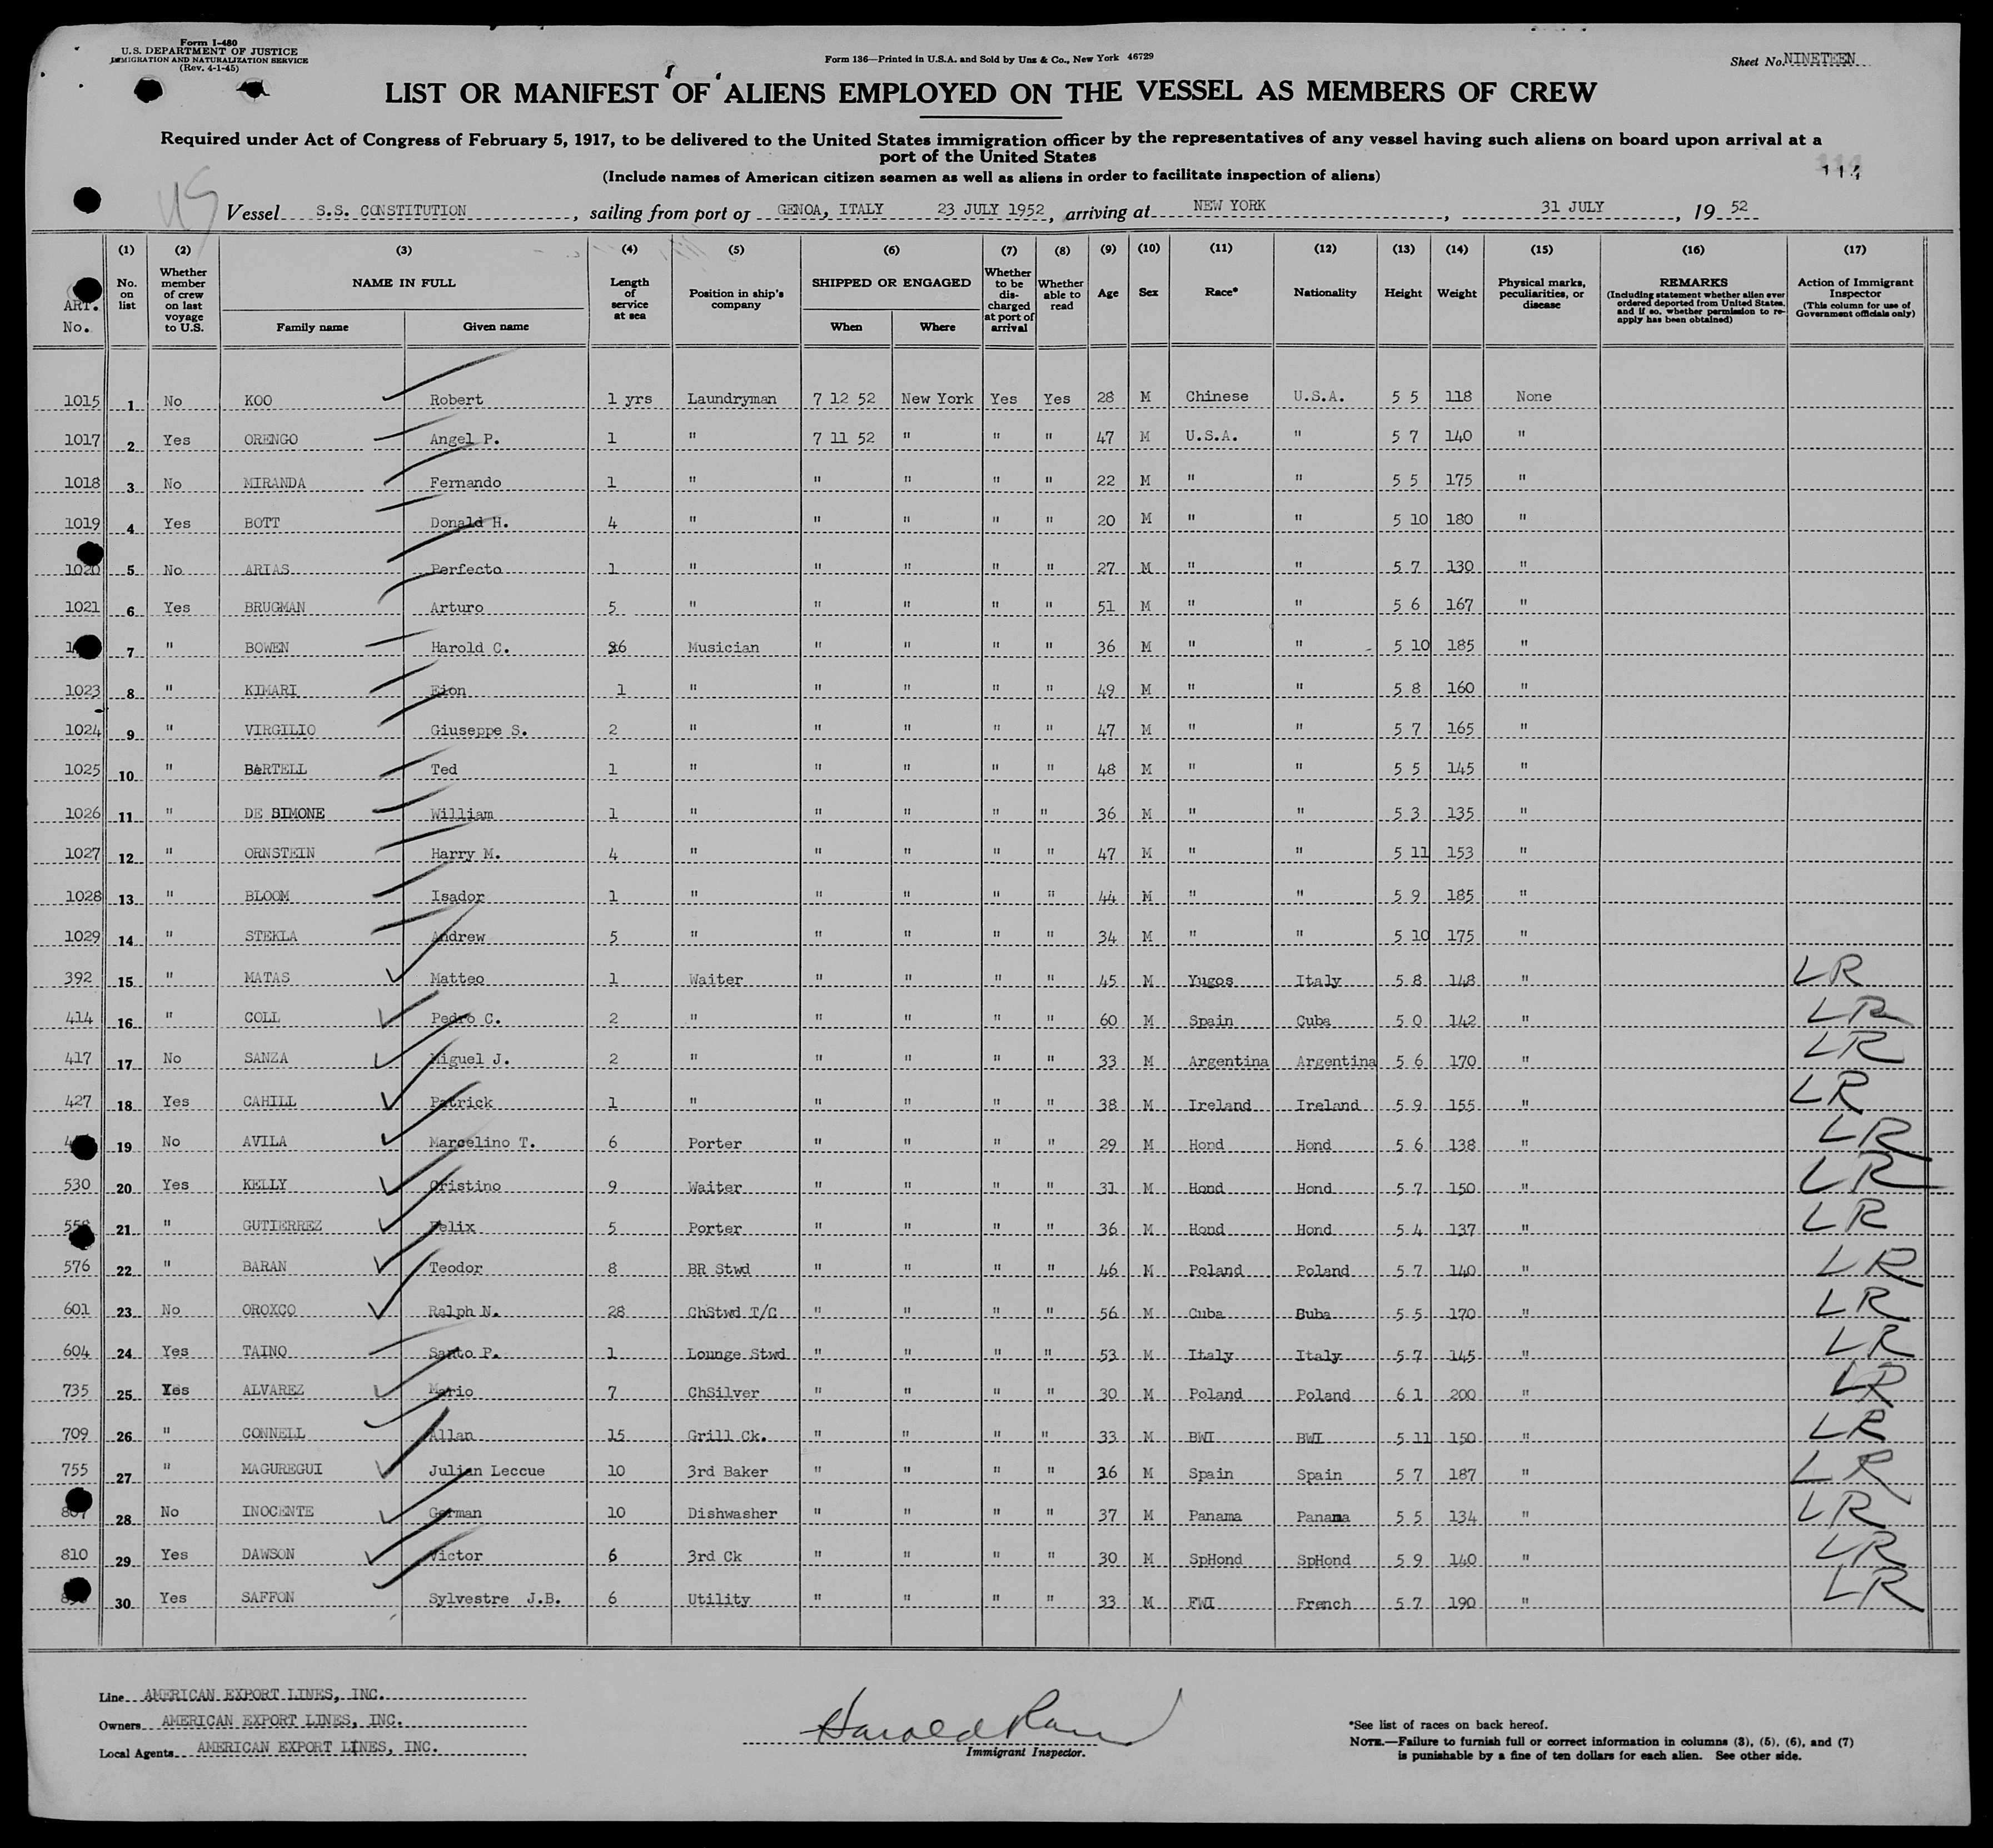 Form I-480
U.S. DEPARTMENT OF JUSTICE
IMMIGRATION AND NATURALIZATION SERVICE
(Rev. 4-1-45)
Form 136—Printed in U.S.A. and Sold by Unz & Co., New York 46729
Sheet No. NINETEEN
LIST OR MANIFEST OF ALIENS EMPLOYED ON THE VESSEL AS MEMBERS OF CREW
Required under Act of Congress of February 5, 1917, to be delivered to the United States immigration officer by the representatives of any vessel having such aliens on board upon arrival at a
port of the United States
(Include names of American citizen seamen as well as aliens in order to facilitate inspection of aliens)
114
US
Vessel S.S. CONSTITUTION, sailing from port of GENOA, ITALY 23 JULY 1952, arriving at NEW YORK, 31 JULY, 19 52
ART. No.
(1) No. on list
(2) Whether member of crew on last voyage to U.S.
(3) NAME IN FULL Family name Given name
(4) Length of service at sea
(5) Position in ship's company
(6) SHIPPED OR ENGAGED When Where
(7) Whether to be discharged at port of arrival
(8) Whether able to read
(9) Age
(10) Sex
(11) Race*
(12) Nationality
(13) Height
(14) Weight
(15) Physical marks, peculiarities, or disease
(16) REMARKS (Including statement whether alien ever ordered deported from United States, and if so, whether permission to reapply has been obtained)
(17) Action of Immigrant Inspector (This column for use of Government officials only)
1015 1 No KOO Robert 1 yrs Laundryman 7 12 52 New York Yes Yes 28 M Chinese U.S.A. 5 5 118 None
1017 2 Yes ORENGO Angel P. 1 " 7 11 52 " " " 47 M U.S.A. " 5 7 140 "
1018 3 No MIRANDA Fernando 1 " " " " " 22 M " " 5 5 175 "
1019 4 Yes BOTT Donald H. 4 " " " " " 20 M " " 5 10 180 "
1020 5 No ARIAS Perfecto 1 " " " " " 27 M " " 5 7 130 "
1021 6 Yes BRUGMAN Arturo 5 " " " " " 51 M " " 5 6 167 "
7 " BOWEN Harold C. Musician " " " " 36 M " " 5 10 185 "
1023 8 " KIMARI Eion 1 " " " " " 49 M " " 5 8 160 "
1024 9 " VIRGILIO Giuseppe S. 2 " " " " " 47 M " " 5 7 165 "
1025 10 " BARTELL Ted 1 " " " " " 48 M " " 5 5 145 "
1026 11 " DE SIMONE William 1 " " " " " 36 M " " 5 3 135 "
1027 12 " ORNSTEIN Harry M. 4 " " " " " 47 M " " 5 11 153 "
1028 13 " BLOOM Isador 1 " " " " " 44 M " " 5 9 185 "
1029 14 " STEKLA Andrew 5 " " " " " 34 M " " 5 10 175 "
392 15 " MATAS Matteo 1 Waiter " " " " 45 M Yugos Italy 5 8 148 " LR
414 16 " COLL Pedro C. 2 " " " " " 60 M Spain Cuba 5 0 142 " LR
417 17 No SANZA Miguel J. 2 " " " " " 33 M Argentina Argentina 5 6 170 " LR
427 18 Yes CAHILL Patrick 1 " " " " " 38 M Ireland Ireland 5 9 155 " LR
19 No AVILA Marcelino T. 6 Porter " " " " 29 M Hond Hond 5 6 138 " LR
530 20 Yes KELLY Cristino 9 Waiter " " " " 31 M Hond Hond 5 7 150 " LR
21 " GUTIERREZ Felix 5 Porter " " " " 36 M Hond Hond 5 4 137 " LR
576 22 " BARAN Teodor 8 BR Stwd " " " " 46 M Poland Poland 5 7 140 " LR
601 23 No OROXCO Ralph N. 28 ChStwd T/C " " " " 56 M Cuba Buba 5 5 170 " LR
604 24 Yes TAINO Santo P. 1 Lounge Stwd " " " " 53 M Italy Italy 5 7 145 " LR
735 25 Yes ALVAREZ Mario 7 ChSilver " " " " 30 M Poland Poland 6 1 200 " LR
709 26 " CONNELL Allan 15 Grill Ck. " " " " 33 M BWI BWI 5 11 150 " LR
755 27 " MAGUREGUI Julian Leccue 10 3rd Baker " " " " 36 M Spain Spain 5 7 187 " LR
28 No INOCENTE German 10 Dishwasher " " " " 37 M Panama Panama 5 5 134 " LR
810 29 Yes DAWSON Victor 6 3rd Ck " " " " 30 M SpHond SpHond 5 9 140 " LR
30 Yes SAFFON Sylvestre J.B. 6 Utility " " " " 33 M FWI French 5 7 190 " LR
Line AMERICAN EXPORT LINES, INC.
Owners AMERICAN EXPORT LINES, INC.
Local Agents AMERICAN EXPORT LINES, INC.
Harold
Immigrant Inspector.
*See list of races on back hereof.
NOTE.—Failure to furnish full or correct information in columns (3), (5), (6), and (7)
is punishable by a fine of ten dollars for each alien. See other side.